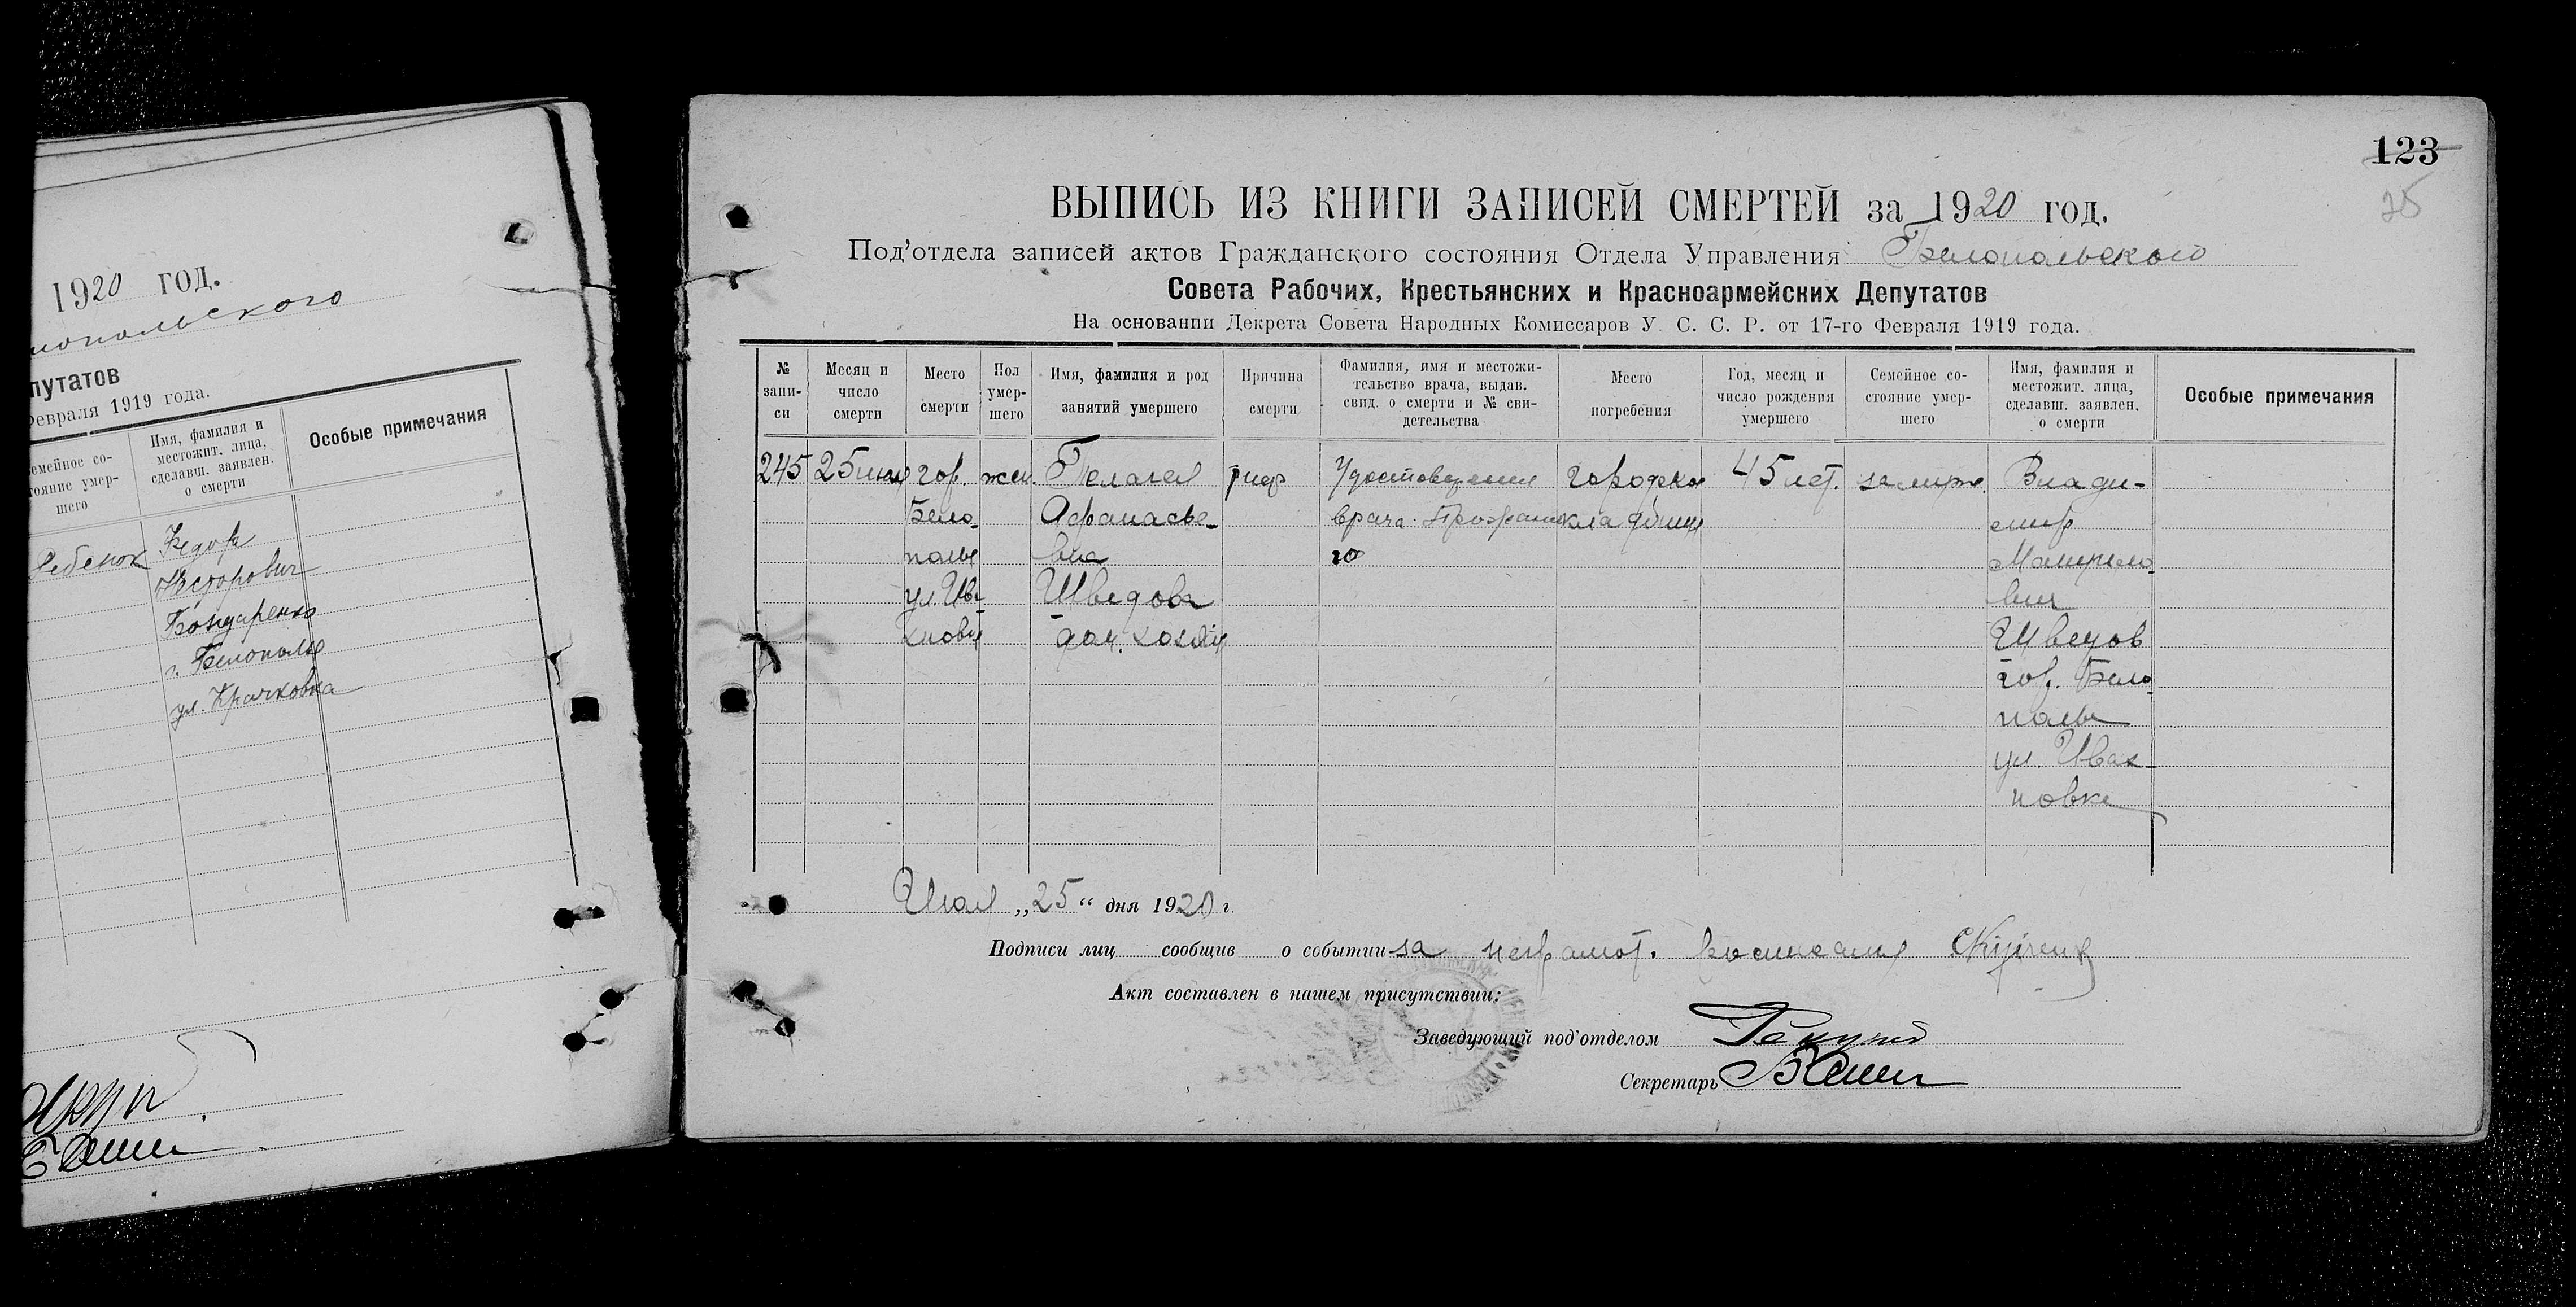 1920 год.
нопольского
путатов
Февраля 1919 года.
Семейное со-
тояние умер-
шего
Имя, фамилия и
местожит. лица,
сделавш. заявлен.
о смерти
Особые примечания
Ребенок
Федор
Несторович
Бондаренко
г. Белополье
ул. Крачковка
123
75
ВЫПИСЬ ИЗ КНИГИ ЗАПИСЕЙ СМЕРТЕЙ за 1920 год.
Под'отдела записей актов Гражданского состояния Отдела Управления Белопольского
Совета Рабочих, Крестьянских и Красноармейских Депутатов
На основании Декрета Совета Народных Комиссаров У. С. С. Р. от 17-го Февраля 1919 года.
№
запи-
си
Месяц и
число
смерти
Место
смерти
Пол
умер-
шего
Имя, фамилия и род
занятий умершего
Причина
смерти
Фамилия, имя и местожи-
тельство врача, выдав.
свид. о смерти и № сви-
детельства
Место
погребения
Год, месяц и
число рождения
умершего
Семейное со-
стояние умер-
шего
Имя, фамилия и
местожит. лица,
сделавш. заявлен.
о смерти
Особые примечания
245
25 июля
гор.
Бело-
полье
ул. Ива-
жен.
Пелагея
Афанасье-
вна
Шведова
дом. хозяй
Удостоверения
врача
го
городское
кладбище
45 лет.
замуж.
Влади-
мир
вич
Швецов
гор. Бело-
полье
ул. Ивах-
новка
Июля „25“ дня 1920 г.
Подписи лиц сообщив о событии за неграмот.
Акт составлен в нашем присутствии:
Заведующий под'отделом
Секретарь